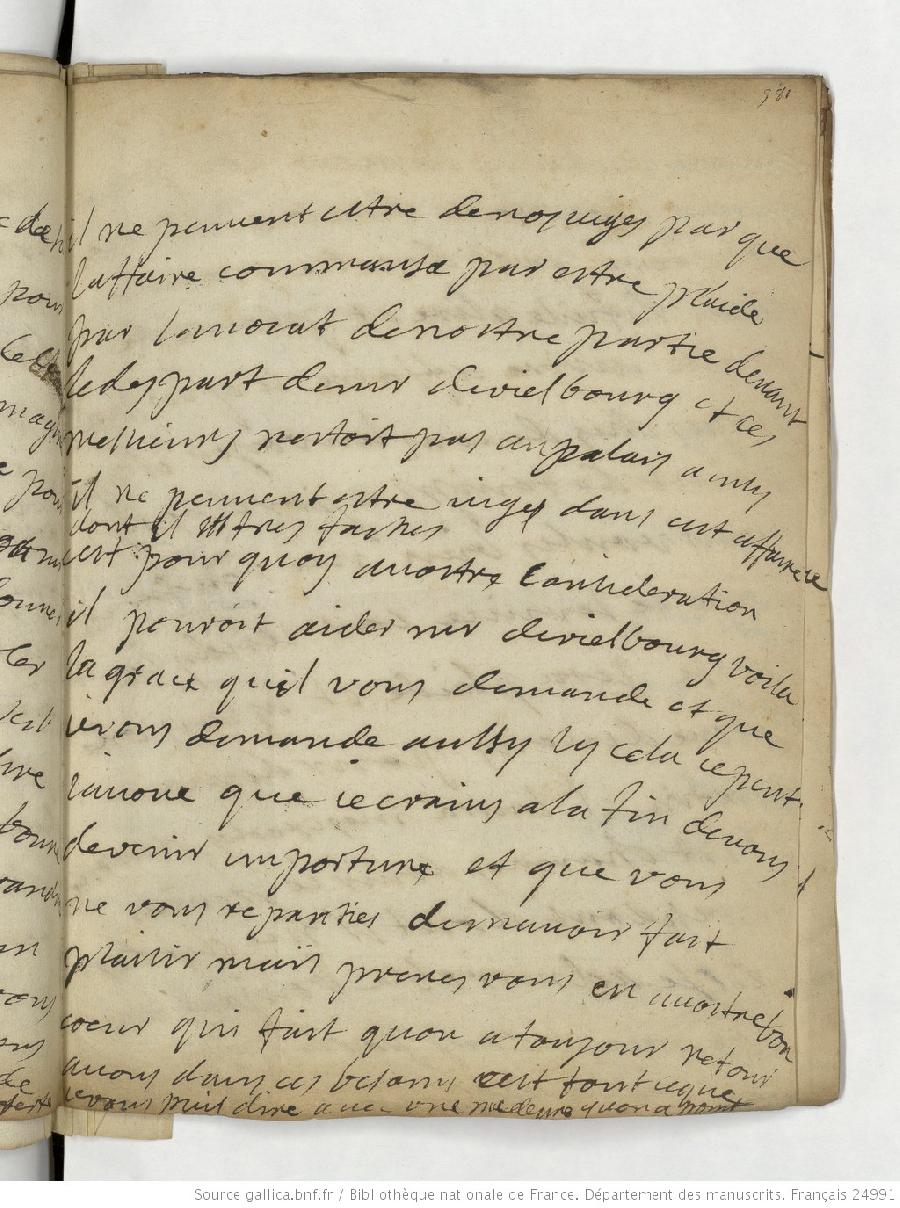 380
il ne peuvent estre de nos juges par que
laffaire commansa par estre plaide
par lavocat de nostre partie devant
le despart de mr de viel bourg et ces
messieurs nestoit pas au palais ainsy
il ne peuvent estre juges dans cest affaire
dont il tres faches
cest pour quoy a vostre consideration
il pouroit aider mr de viel bourg voila
la grace quil vous demande et que
je vous demande aussy
javoue que je crains a la fin de vous
devenir importune et que vous
ne vous repanties de mavoir fait
plaisir mais prenes vous en a vostre bon
coeur qui fait quon a toujour retour
a vous dans ces besoins cest tout ceque
je vous puis dire avec une quon a
Source gallica.bnf.fr / Bibliothèque nationale de France. Département des manuscrits. Français 24991